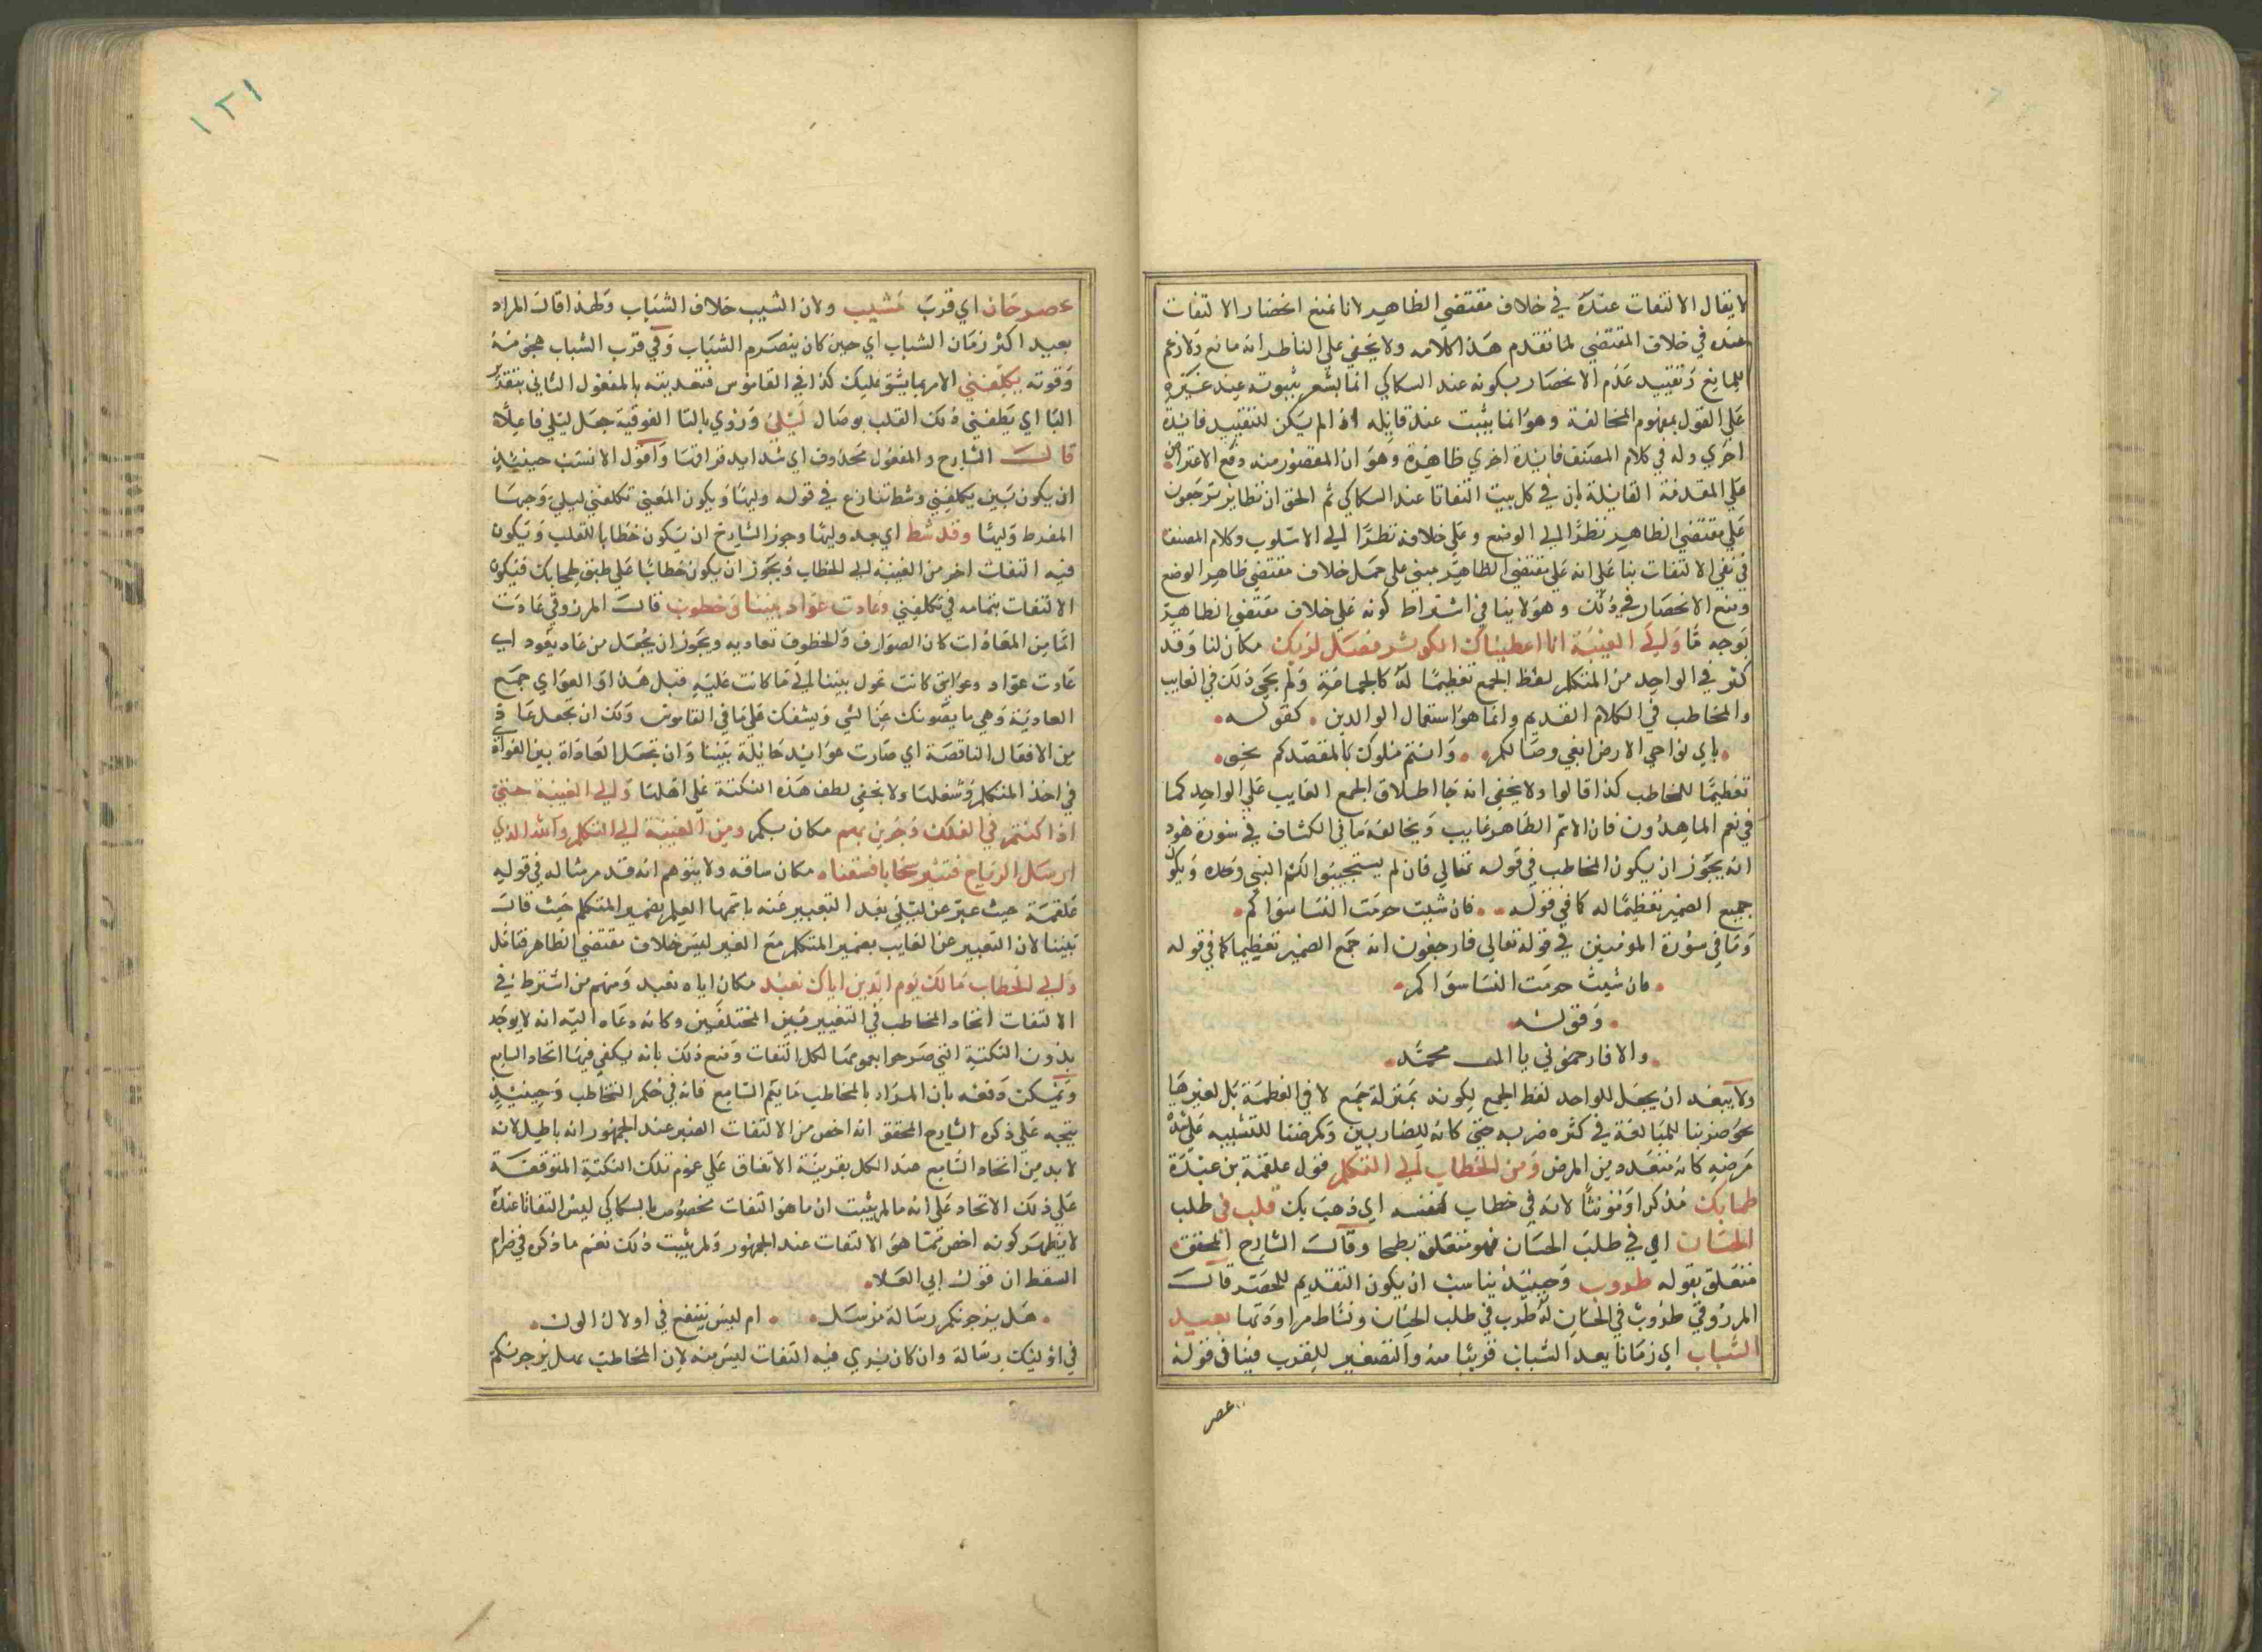 لا يقال الالتفات عنده في خلاف مقتضي الظاهر لانا نمنع انحصار الالتفات
عنده في خلاف المقتضي لما تقدم هذا كلامه ولا يخفي علي الناظر انه مانع ولا زعم
للمانع وتقييد عدم الانحصار بكونه عند السكاكي انما يشعر بثبوته عند غيره
علي القول بمفهوم المخالفة وهو انما يثبت عند قايله اذا لم يكن للتقييد فايدة
اخري وله في كلام المصنف فايدة اخري ظاهرة وهو ان المقصود منه دفع الاعتراض
علي المقدمة القايلة بان في كل بيت التفاتا عند السكاكي ثم الحق ان نظاير ترجعون
علي مقتضي الظاهر نظرا الي الوضع وعلي خلافه نظرا الي الاسلوب وكلام المصنف
في نفي الالتفات بنا علي انه علي مقتضي الظاهر مبني علي حمل خلاف مقتضي ظاهر الوضع
ومنع الانحصار في ذلك وهو لا ينافي اشتراط كونه علي خلاف مقتضي الظاهر
بوجه ما والي الغيبة انا اعطيناك الكوثر فصل لربك مكان لنا وقد
كثر في الواحد من المتكلم لفظ الجمع تعظيما له كالجماعة ولم يجي ذلك في الغايب
والمخاطب في الكلام القديم وانما هو استعمال الوالدين كقوله
باي نواحي الارض ابغي وصالكم وانتم ملوك ما لمقصدكم نحو
تعظيما للمخاطب كذا قالوا ولا يخفي انه جا اطلاق الجمع الغايب علي الواحد كما
في نعم الماهدون فان الاتم الظاهر غايب ويخالفه ما في الكشاف في سورة هود
انه يجوز ان يكون المخاطب في قوله تعالي فان لم يستجيبوا لكم النبي وحده ويكون
جمع الضمير تعظيما له كما في قوله فان شيت حرمت النسا سواكم
وما في سورة المومنين في قوله تعالي فارجعون انه جمع الضمير تعظيما كما في قوله
فان شيت حرمت النسا سواكم
وقوله
والا فارحموني يا اله محمد
ولا يبعد ان يجعل للواحد لفظ الجمع لكونه بمنزلة جمع لا في العظمة بل لغيرها
نحو ضربنا للمبالغة في كثره ضربه حتي كانه للضاربين وكمرضنا للتشبيه علي شدة
مرضه كانه متعدد من المرض ومن الخطاب الي المتكلم قول علقمة بن عبدة
طحا بك مذكرا او مونثا لانه في خطاب لنفسه اي ذهب بك قلب في طلب
الحسان اي في طلب الحسان فهو متعلق بطحا وقال الشارح المحقق
متعلق بقوله طروب وحينئذ يناسب ان يكون التقديم للحصر قال
المرزوقي طروب في الحسان له طرب في طلب الحسان ونشاط مراودتها بعيد
الشباب اي زمانا بعد الشباب قريبا منه والتصغير للقرب فينافي قوله
عصر
١٢١
عصر حان اي قرب مشيب ولان الشيب خلاف الشباب ولهذا قال المراد
بعيد اكثر زمان الشباب اي حين كان ينصرم الشباب وفي قرب الشباب
وقوته يكلفني الامر بما يشق عليك كذا في القاموس فتعديته بالمفعول الثاني بتقدير
البا اي ذلك القلب بوصال ليلي وروي بالتا الفوقية جعل ليلي فاعله
قال الشارح والمفعول محذوف اي شدايد فراقها واقول الانسب حينيذ
ان يكون بين يكلفني وشط تنازع في قوله وليها ويكون المعني تكلفني ليلي وجها
المفرط وليها وقد شط اي بعد وليها وجوز الشارح ان يكون خطابا للقلب ويكون
فيه التفات اخر من الغيبة الي الخطاب ويجوز ان يكون خطابا علي طبق طحا بك فيكون
الالتفات بتمامه في تكلفني وعادت عواد بيننا وخطوب قال المرزوقي عادت
اما من المعاداة كان الصوارف والخطوب تعاديه ويجوز ان يجعل من عاد يعود اي
عادت عواد وعوايق كانت تحول بيننا الي ما كانت عليه قبل هذا او العوادي جمع
العادية وهي ما يصونك عن الشي ويشغلك علي ما في القاموس ولك ان تجعل عاد
من الافعال الناقصة اي صارت عوايد حايلة بيننا وان تجعل المعاداة بين العوادي
في اخذ المتكلم وشغلها ولا يخفي لطف هذه النكتة علي اهلها والي الغيبة حتي
اذا كنتم في الفلك وجرين بهم مكان بكم ومن الغيبة الي التكلم والله الذي
ارسل الرياح فتثير سحابا فسقناه مكان ساقه ولا يتوهم انه قد مر مثاله في قوله
علقمة حيث عبر عن ليلي بعد التعبير عنه باسمها العلم بضمير المتكلم حيث قال
بيننا لان التعبير عن الغايب بضمير المتكلم مع الغير ليس خلاف مقتضي الظاهر فتامل
والي الخطاب مالك يوم الدين اياك نعبد مكان اياه نعبد ومنهم من اشترط في
الالتفات اتحاد المخاطب في التعبير بين المختلفين وكانه دعاه اليه انه لا يوجد
بدون النكتة التي صرحوا بعمومها لكل التفات ومنع ذلك بانه يكفي فيها اتحاد السامع
ويمكن دفعه بان المراد بالمخاطب ما يعم السامع فانه في حكم التخاطب وحينيذ
يتجه علي ذكره الشارح المحقق انه اخص من الالتفات المعتبر عند الجمهور انه باطل لانه
لا بد من اتحاد السامع عند الكل بقرينة الاتفاق علي عموم تلك النكتة المتوقفة
علي ذلك الاتحاد علي انه ما لم يثبت ان ما هو التفات مخصوص بالسكاكي ليس التفاتا عنده
لا يظهر كونه اخص مما هو الالتفات عند الجمهور ولم يثبت ذلك نعم ما ذكره في ضرام
السقط ان قول ابي العلا
هل يزجرنكم رسالة مرسل ام ليس ينفع في اولاك الوك
في اوليك رسالة وان كان يري فيه التفات ليس منه لان المخاطب بهل يزجرنكم